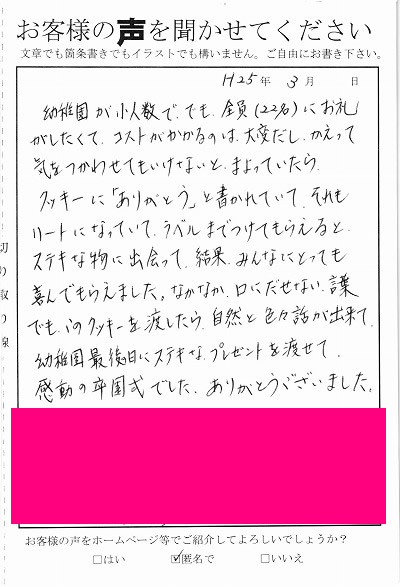 お客様の声を聞かせてください
文章でも箇条書きでもイラストでも構いません。ご自由にお書き下さい。
H25年 3月 日
幼稚園が小人数で、でも、全員(22名)にお礼
がしたくて、コストがかかるのは、大変だし、かえって
気をつかわせてもいけないと、まよっていたら、
クッキーに「ありがとう」と書かれていて、それも
ハートになっていて、ラベルまでつけてもらえると、
ステキな物に出会って、結果、みんなにとっても
喜んでもらえました。なかなか、口にだせない言葉
でも、このクッキーを渡したら、自然と色々話が出来て、
幼稚園最後日にステキなプレゼントを渡せて、
感動の卒園式でした。ありがとうございました。
切り取り線
お客様の声をホームページ等でご紹介してよろしいでしょうか？
□はい ☑匿名で □いいえ